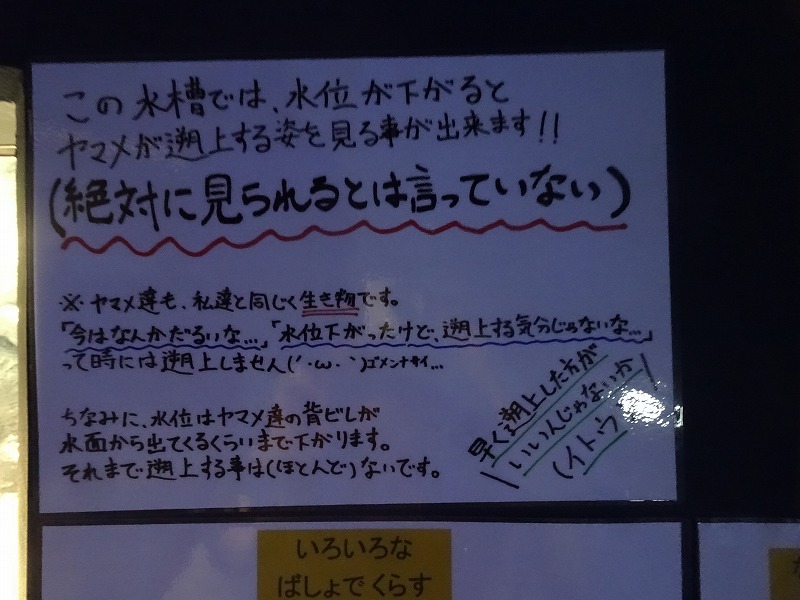 この水槽では、水位が下がると
ヤマメが遡上する姿を見る事が出来ます!!
(絶対に見られるとは言っていない)
※ ヤマメ達も、私達と同じく生き物です。
「今はなんかだるいな…」「水位下がったけど、遡上する気分じゃないな…」
って時には遡上しません(´・ω・`)ゴメンナサイ…
ちなみに、水位はヤマメ達の背ビレが
水面から出てくるくらいまで下がります。
それまで遡上する事は(ほとんど)ないです。
早く遡上した方が
\いいんじゃないか/
(イトウ
いろいろな
ばしょでくらす